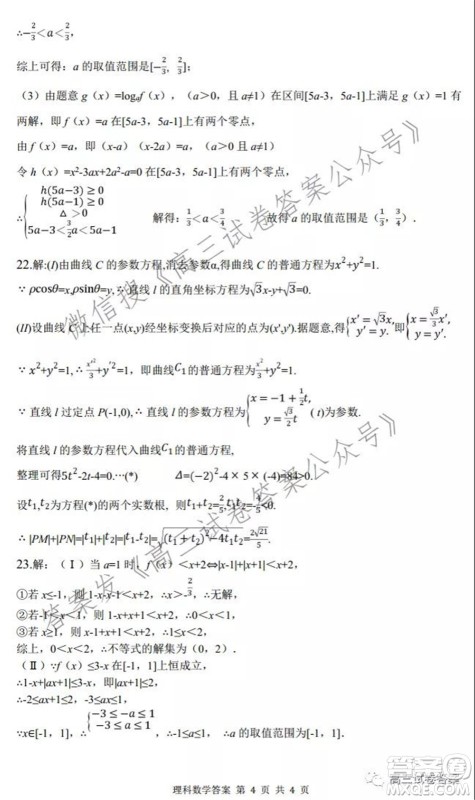 ∴-2/3<a<2/3,
综上可得：a 的取值范围是[-2/3, 2/3]；
（3）由题意 g（x）=logₐf（x），（a＞0，且 a≠1）在区间[5a-3，5a-1]上满足 g（x）=1 有
两解，即 f（x）=a 在[5a-3，5a-1]上有两个零点，
由 f（x）=a，即（x-a）（x-2a）=a，（a＞0 且 a≠1）
令 h（x）=x²-3ax+2a²-a=0 在[5a-3，5a-1]上有两个零点，
∴{h(5a−3)≥0
h(5a−1)≥0
△>0
5a−3<3/2a<5a−1 解得：1/3<a<3/4 故得 a 的取值范围是（1/3，3/4）．
22.解:(I)由曲线 C 的参数方程,消去参数α,得曲线 C 的普通方程为x²+y²=1.
∵ ρcosθ=x,ρsinθ=y,∴ 直线 l 的直角坐标方程为√3x-y+√3=0.
(II)设曲线 C 上任一点(x,y)经坐标变换后对应的点为(x',y').据题意,得{x'=√3x, y'=y. 即{x=√3/3x', y=y'.
∵ x²+y²=1,∴ x'²/3+y'²=1，即曲线C₁的普通方程为x²/3+y²=1.
∵ 直线 l 过定点 P(-1,0),∴ 直线 l 的参数方程为{x=−1+1/2t, y=√3/2t ( t)为参数.
将直线 l 的参数方程代入曲线C₁的普通方程,
整理可得5t²-2t-4=0.⋯(*) Δ=(−2)²-4×5×(-4)=84>0.
设t₁,t₂为方程(*)的两个实数根, 则t₁+t₂=2/5,t₁t₂=-4/5<0.
∴ |PM|+|PN|=|t₁|+|t₂|=|t₁-t₂|=√((t₁+t₂)²−4t₁t₂)=2√21/5.
23.解：（Ⅰ）当 a=1 时，f（x）＜x+2⇔|x-1|+|x+1|＜x+2，
①若 x≤-1，则 1-x-x-1＜x+2，∴x＞-2/3，∴无解，
②若-1＜x＜1，则 1-x+x+1＜x+2，∴0＜x＜1，
③若 x≥1，则 x-1+x+1＜x+2，∴1≤x＜2，
综上，0＜x＜2，∴不等式的解集为（0，2）．
（Ⅱ）∵f（x）≤3-x 在[-1，1]上恒成立，
∴1-x+|ax+1|≤3-x，即|ax+1|≤2，
∴-2≤ax+1≤2，-3≤ax≤1，
∵x∈[-1，1]，∴{−3≤−a≤1
−3≤a≤1，∴-1≤a≤1， ∴a 的取值范围为[-1，1]．
理科数学答案 第 4 页 共 4 页
微信搜《高三试卷答案公众号》
答案发《高三试卷答案公众号》
高三试卷答案
答案圈
MXQE.COM